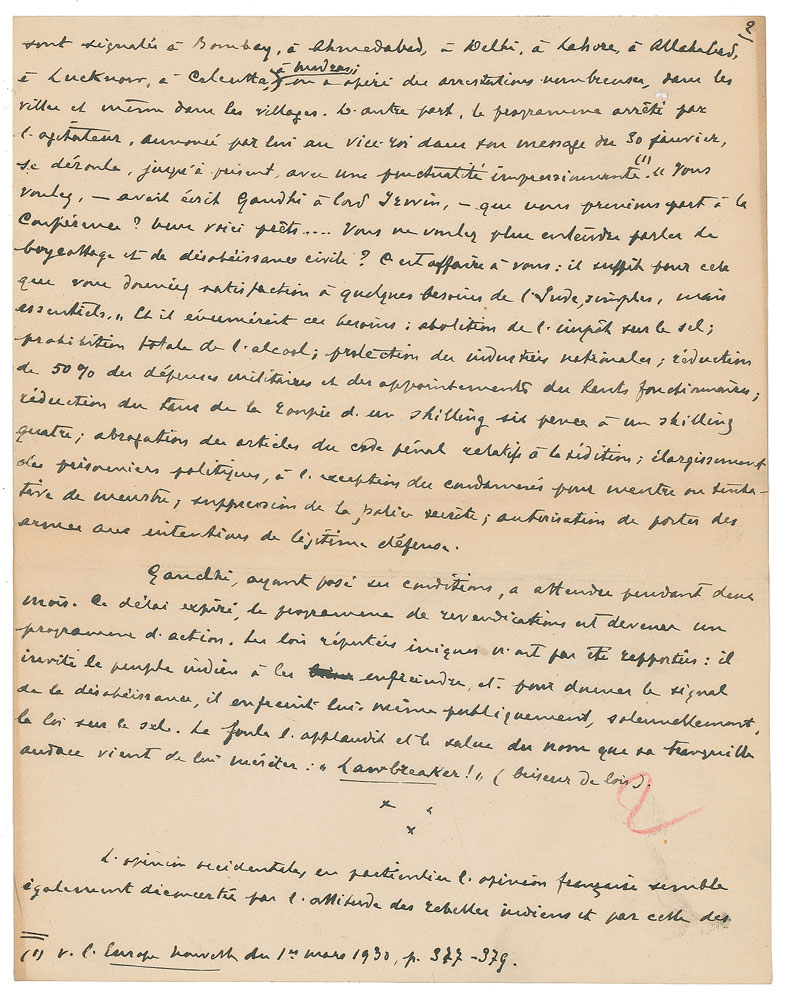 2
sont signalés à Bombay, à Ahmedabad, à Delhi, à Lahore, à Allahabad,
à Lucknow, à Calcutta, à Madras; on a opéré des arrestations nombreuses, dans les
villes et même dans les villages. D'autre part, le programme arrêté par
l'agitateur, annoncé par lui au vice-roi dans son message du 30 janvier,
se déroule, jusqu'à présent, avec une ponctualité impressionnante (1). "Vous
voulez, — avait écrit Gandhi à lord Irwin, — que nous prenions part à la
Conférence? Nous voici prêts.... Vous ne voulez plus entendre parler de
boycottage et de désobéissance civile? C'est affaire à vous: il suffit pour cela
que vous donniez satisfaction à quelques besoins de l'Inde, simples, mais
essentiels." Et il énumérait ces besoins: abolition de l'impôt sur le sel;
prohibition totale de l'alcool; protection des industries nationales; réduction
de 50% des dépenses militaires et des appointements des hauts fonctionnaires;
réduction du taux de la roupie d'un shilling six pence à un shilling
quatre; abrogation des articles du code pénal relatifs à la sédition; élargissement
des prisonniers politiques, à l'exception des condamnés pour meurtre ou tenta-
tive de meurtre; suppression de la police secrète; autorisation de porter des
armes aux intentions de légitime défense.
Gandhi, ayant posé ses conditions, a attendu pendant deux
mois. Ce délai expiré, le programme de revendications est devenu un
programme d'action. Les lois réputées iniques n'ont pas été rapportées: il
invite le peuple indien à les enfreindre, et, pour donner le signal
de la désobéissance, il enfreint lui-même publiquement, solennellement,
la loi sur le sel. La foule l'applaudit et le salue du nom que sa tranquille
audace vient de lui mériter: "Lawbreaker!" (briseur de lois).
x x
x
L'opinion occidentale, en particulier l'opinion française semble
également déconcertée par l'attitude des rebelles indiens et par celle des
(1) v. l'Europe nouvelle du 1er mars 1930, p. 377-379.